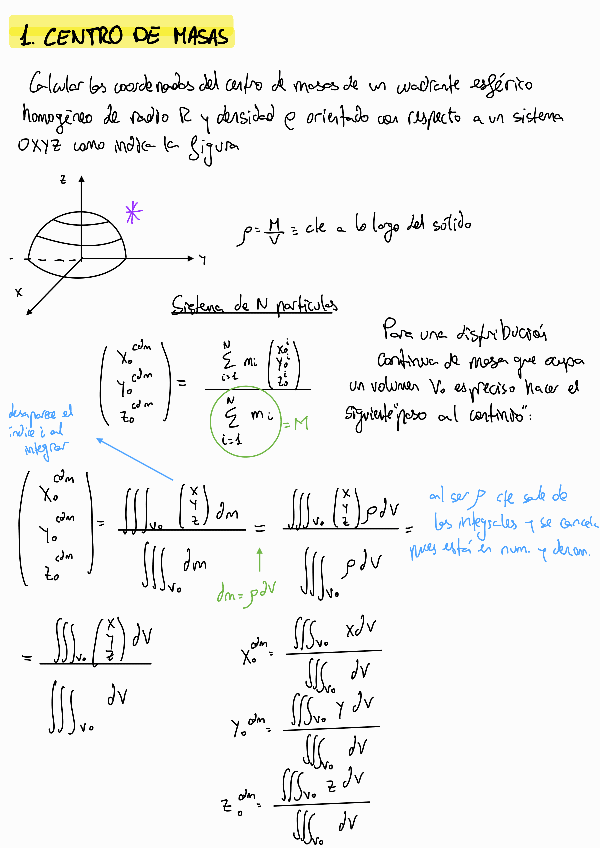 1. CENTRO DE MASAS
Calcular las coordenadas del centro de masas de un cuadrante esférico
homogéneo de radio R y densidad ρ orientado con respecto a un sistema
OXYZ como indica la figura
Z
Y
X
ρ = M/V ≡ cte a lo largo del sólido
Sistema de N partículas
(X₀^cdm Y₀^cdm Z₀^cdm) = Σ_{i=1}^{N} mi (X₀^i Y₀^i Z₀^i) / Σ_{i=1}^{N} mi = M
Para una distribución
continua de masa que ocupa
un volumen V₀ es preciso hacer el
siguiente "paso al continuo":
desaparece el
índice i al
integrar
(X₀^cdm Y₀^cdm Z₀^cdm) = ∭_{V₀} (X Y Z) dm / ∭_{V₀} dm = ∭_{V₀} (X Y Z) ρdV / ∭_{V₀} ρdV =
dm = ρdV
al ser ρ cte sale de
las integrales y se cancela
pues está en num. y denom.
= ∭_{V₀} (X Y Z) dV / ∭_{V₀} dV
X₀^cdm = ∭_{V₀} XdV / ∭_{V₀} dV
Y₀^cdm = ∭_{V₀} Y dV / ∭_{V₀} dV
Z₀^cdm = ∭_{V₀} Z dV / ∭_{V₀} dV